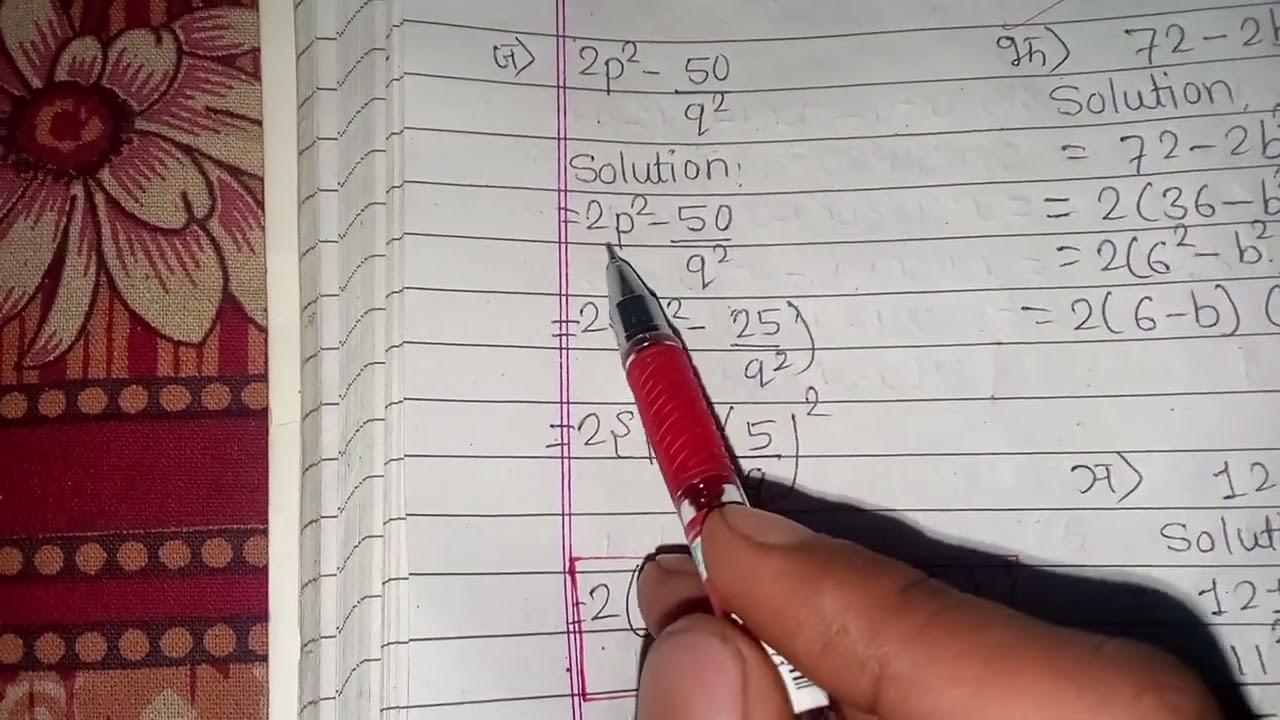 (न) 2p² - 50/q²
Solution:
= 2p² - 50/q²
= 2 ² - 25/q²)
= 2 (5/ )²
= 2(
72 - 2b
Solution,
= 72 - 2b²
= 2(36 - b²
= 2(6² - b²
= 2(6 - b) (
12
Solut
12
11